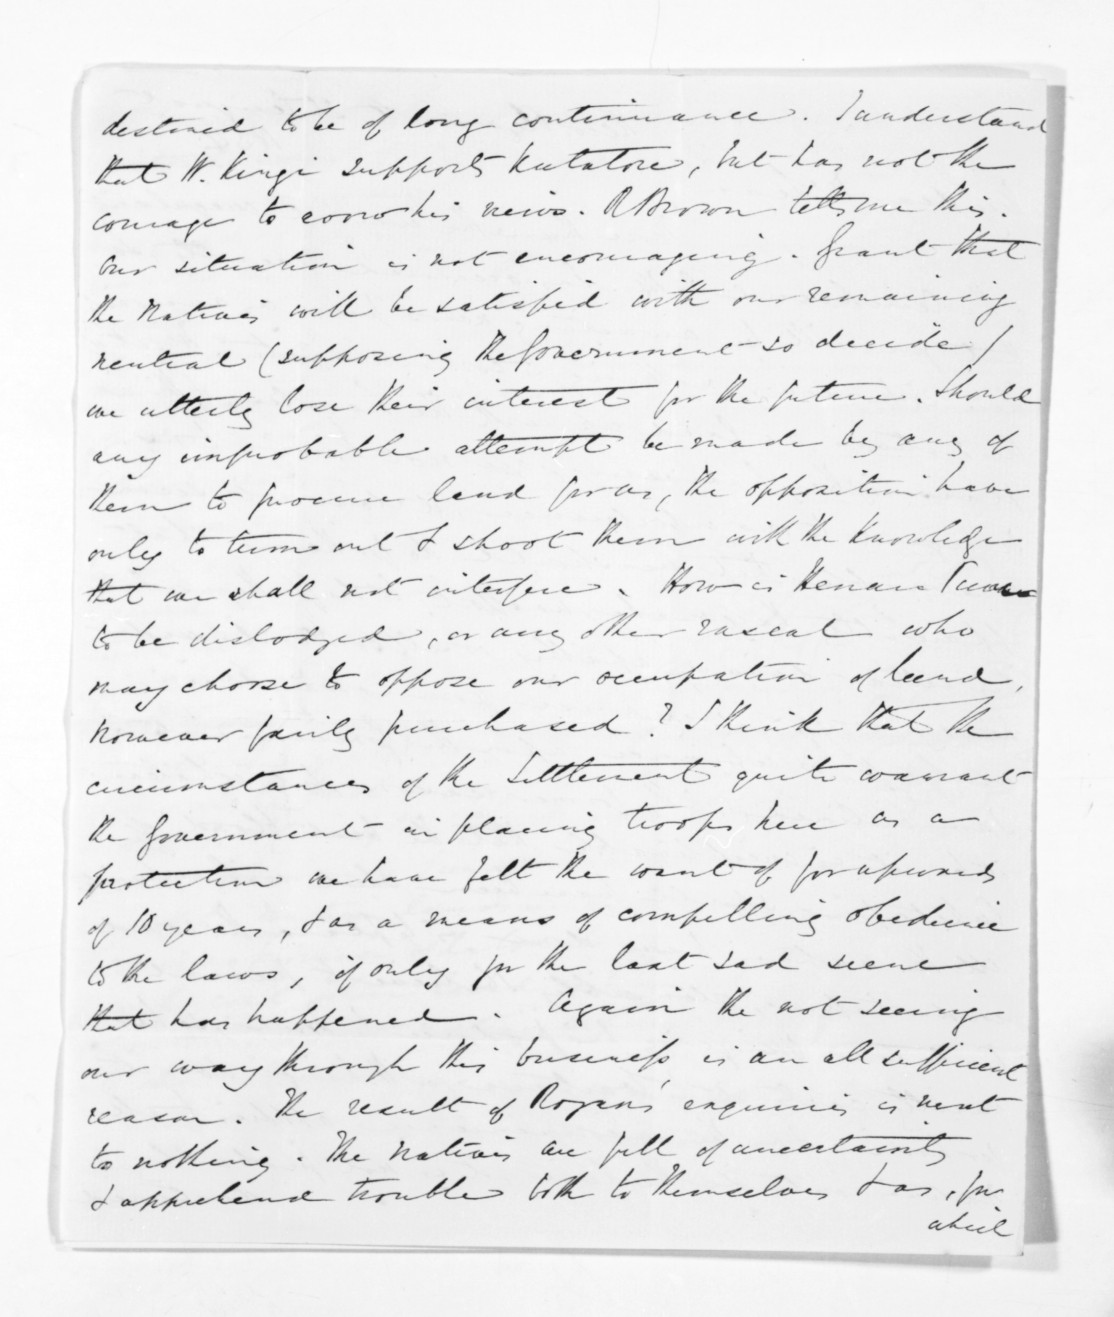 destined to be of long continuance. I understand
that W. Kingi supports Katatore, but has not the
courage to avow his views. R Brown tells me this.
Our situation is not encouraging. Grant that
the Natives will be satisfied with our remaining
neutral (supposing the Government so decide)
we utterly lose their interest for the future. Should
any improbable attempt be made by any of
them to procure land for us, the opposition have
only to turn out & shoot them with the knowledge
that we shall not interfere. How is
to be dislodged, or any other rascal who
may choose to oppose our occupation of land,
however fairly purchased? I think that the
circumstances of the Settlement quite warrant
the Government in placing troops here as a
protection we have felt the want of for upwards
of 10 years, & as a means of compelling obedience
to the laws, if only for the last sad scene
that has happened. Again the not seeing
our way through this business, is an all sufficient
reason. The result of Rogans enquiries is next
to nothing. The natives are full of uncertainty
& apprehend trouble both to themselves & us, for